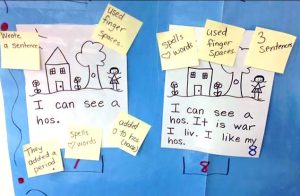 Wrote a sentence.
Used finger spares.
I can see a hos.
They added a period.
Spells ♡ words
added o to hos (house)
7
Spells ♡ words
used finger spares
3 sentences
I can see a
hos. It is war
I liv. I like my
hos.
8
8